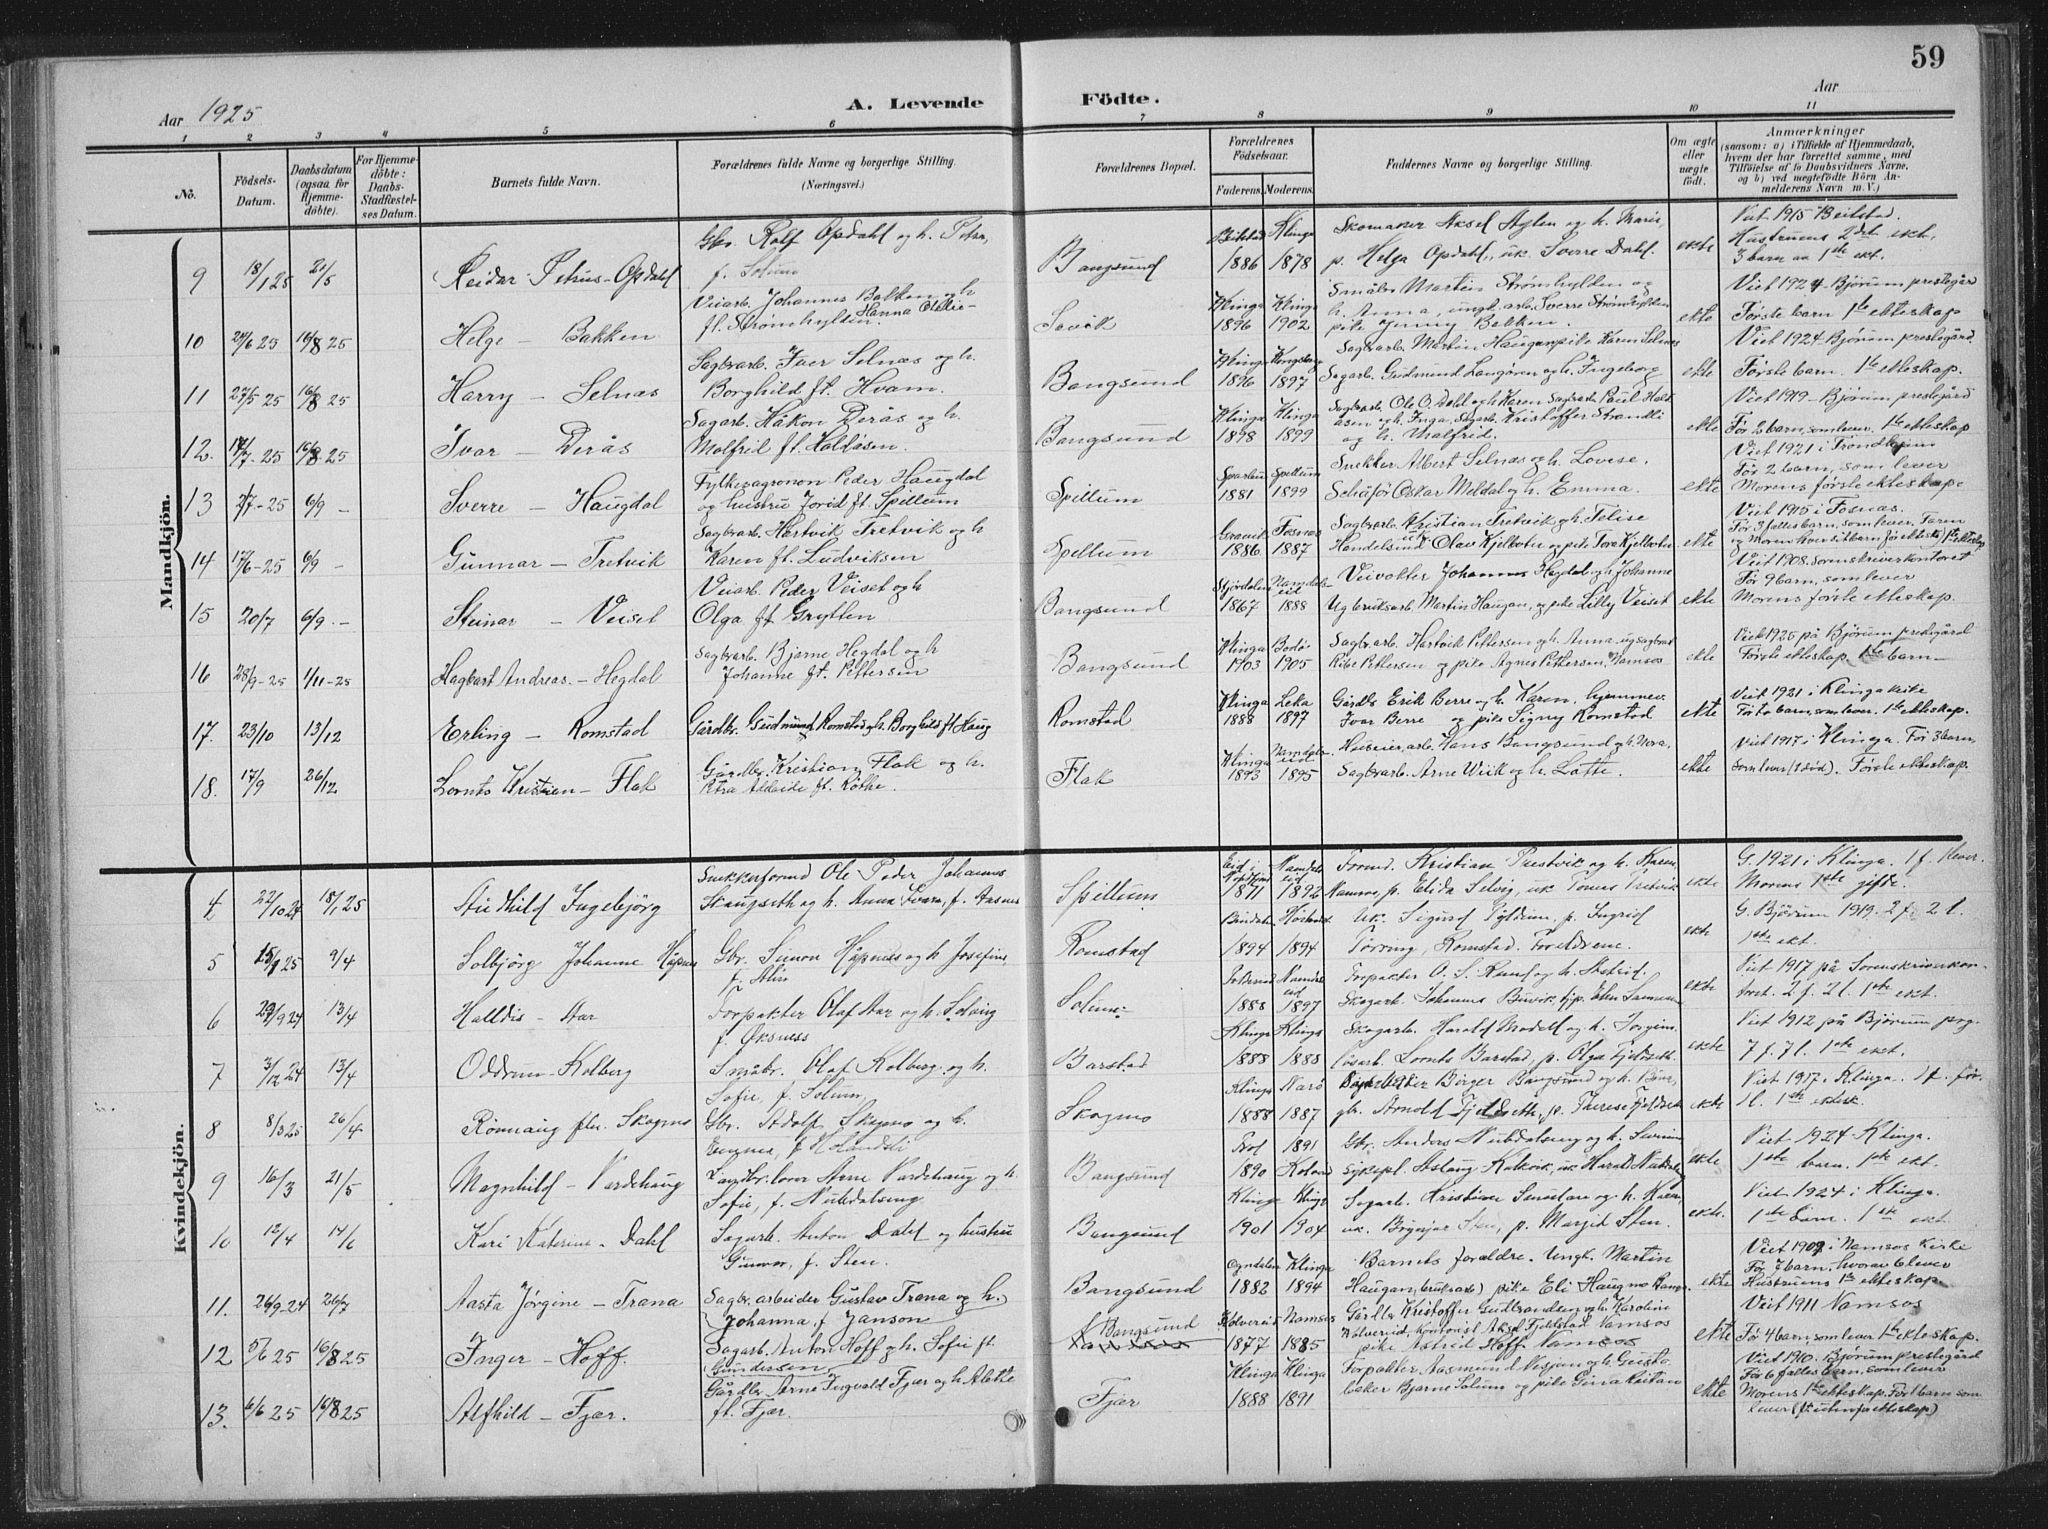 59
Aar 1925
A. Levende Födte.
Aar
1 2 3 4 5 6 7 8 9 10 11
No.
Födsels-Datum.
Daabsdatum (ogsaa for Hjemmedöbte).
For Hjemmedöbte: Daabs-Stadfæstelses Datum.
Barnets fulde Navn.
Forældrenes fulde Navne og borgerlige Stilling. (Næringsvei.)
Forældrenes Bopæl.
Forældrenes Födselsaar.
Faderens. Moderens.
Faddernes Navne og borgerlige Stilling.
Om ægte eller uægte födt.
Anmærkninger (saasom: a) i Tilfælde af Hjemmedaab, hvem der har forrettet samme, med Tilföielse af to Daabsvidners Navne, og b) ved uægtefödte Börn Anmelderens Navn m. V.)
Mandkjön.
9 18/1 25 21/5 Reidar Petrus Opdahl
Gbr. Rolf Opdahl og h. Petra, f. Solum
Bangsund Beitstad 1886 Klinga 1878
Skomaker Aksel og h. Marie, p. Helga Opdahl, uk. Sverre Dahl.
ekte Viet 1915 Beitstad. Hustruens 2det ekt. 3 barn av 1ste ekt.
10 24/6 25 16/8 25 Helge – Bakken
Veiarb. Johannes Bakken og h. Hanna Otelie ft. Strømhylden.
Savik Klinga 1896 Klinga 1902
Småbr. Martin Strømhylden og h. Anna, ungk. arb. Sverre Strømhylden pike Jenny Bakken.
ekte Viet 1924 Bjørum prestegård Første barn 1ste ekteskap
11 27/5 25 16/8 25 Harry – Selnæs
Sagbrarb. Iver Selnæs og h. Borghild ft. Hvam.
Bangsund Klinga 1896 Kongsberg 1897
Sagbrarb. Martin Haugan pike Karen Selnæs Sagarb. Gudmund Langåren og h. Ingeborg
ekte Viet 1924 Bjørum prestegård Første barn. 1ste ekteskap.
12. 14/7 25 16/8 25 Ivar – Derås
Sagarb. Håkon Derås og h. Malfrid ft. Haldåsen.
Bangsund Klinga 1898 Klinga 1899
Sagbrarb. Ole O. Dahl og h. Karen Sagbrarb Paul Haldåsen og h. Inga. Sagarb. Kristoffer Strandli og h. Malfrid.
ekte Viet 1919 – Bjørum prestegård Før 2 barn, som lever. 1ste ekteskap
13 2/7 25 6/9 – Sverre – Haugdal
Fylkesagronom Peder Haugdal og hustru Jorid ft. Spillum
Spillum Sparbu 1881 Spillum 1899
Snekker Albert Selnæs og h. Lovise. Schåfør Oskar Meldal og h. Emma
ekte Viet 1921 i Trondhjem Før 2 barn, som lever Morens første ekteskap
14 17/6 25 6/9 – Gunnar – Tretvik
Sagbrarb. Hartvik Tretvik og h Karen ft. Ludviksen
Spillum Gravvik 1886 Fosnes 1887
Sagbrarb. Kristian Tretvik og h. Felise Handelsmd. Olav Kjelbotn og pike Tora Kjelbotn
ekte Viet 1915 i Fosnas. Før 3 fælles barn, som lever.
15 20/7 6/9 – Steinar – Veiset
Veiarb. Peder Veiset og h Olga ft Grytten
Bangsund Stjørdalen 1867 Namdalseid 1888
Veivokter Johannes Hegdal og h Johanne Ug. bruksarb. Martin Haugan, og pike Lilly Veiset
ekte Viet 1908 Sorenskriverkontoret Før 9 barn, som lever Morens første ekteskap.
16 28/9 25 1/11 25 Hagbart Andreas – Hegdal
Sagbrarb. Bjarne Hegdal og h Johanne ft. Pettersen
Bangsund Klinga 1903 Bodø 1905
Sagbrarb. Hartvik Pettersen og h. Anna, ug sagbrarb Kåre Pettersen og pike Agnes Pettersen, Namsos
ekte Viet 1925 på Bjørum prestegård Første ekteskap 1ste barn –
17. 23/10 13/12 Erling – Romstad
Gårdbr. Gudmund Romstad og h. Borghild ft. Haug
Romstad Klinga 1888 Leka 1897
Gårdbr. Erik Berre og h. Karen, hjemmev. Ivar Berre og pike Signy Romstad
ekte Viet 1921 i Klinga kirke Før to barn, som lever. 1ste ekteskap.
18. 17/9 26/12 Lornts Kristian – Flak
Gårdbr. Kristian Flak og h. Petra Adelaide ft. Røthe.
Flak Klinga 1893 Namdalseid 1895
Høvleriarb. Hans Bangsund og h. Nora. Sagbrarb. Arne Wiik og h. Lotte.
ekte Viet 1917 i Klinga. Før 3 barn, som lever (1 død). Første ekteskap.
Kvindekjön.
4 22/10 24 18/1 25 Audhild Ingebjørg
Snekkerformd Ole Peder Johannes Skaugseth og h. Anna f. Aasnes
Spillum 1871 Namdalseid 1892
Formd. Kristian Prestvik og h. Karen, Namsos, p. Elida Selvig, uk. Tomas Tretvik
ekte G. 1921 i Klinga. 1 f. 1 lever. Morens 1ste gifte.
5 15/1 25 9/4 Solbjørg Johanne Håpnes
Gbr. Simon Håpnes og h Josefine,
Romstad Bindalen 1894 1894
Uk. Sigurd p. Ingrid Tørring, Romstad. Foreldrene.
ekte G. Bjørum 1919. 2 f. 2 l. 1ste ekt.
6 29/9 24 13/4 Halldis – Aar
Forpakter Olaf Aar og h. Solveig f. Øksnes
Solum 1888 Namdalseid 1897
Forpakter O. S. og h. Astrid. Skogarb. Johannes
ekte Viet 1917 på Sorenskriverkontoret. 2 f. 2 l. 1ste ekt.
7 3/12 24 13/4 Oddrun – Kolberg
Småbr. Olaf Kolberg og h. Sofie, f. Solum,
Barstad Klinga 1888 Klinga 1888
Skogarb. Harald Modell og h. Jørgine Løsarb. Lornts Barstad, p. Olga Fjeldseth
ekte Viet 1912 på Bjørum prg. 7 f. 7 l. 1ste ekt.
8 8/3 25 26/4 Rønnaug Skogmo
Gbr. Adolf Skogmo og h. Emma,
Skogmo Klinga 1888 Nærø 1887
Birger Bangsund og h. gbr. Arnold Fjeldseth, p. Therese Fjeldseth
ekte Viet 1917 i Klinga. 1 f. før. 1 l. 1ste ektesk.
9 16/3 21/5 Magnhild – Vardehaug
Landbr.lærer Arne Vardehaug og h. Sofie, f. Nubdalsmg
Bangsund 1890 1891
Gbr. Anders og h. Sykepl. Aslaug uk. Harald
ekte Viet 1924 Klinga. 1ste barn. 1ste ekt.
10 12/4 14/6 Kari Katerine – Dahl
Sagarb. Anton Dahl og hustru Gunvor, f. Sten.
Bangsund Klinga 1901 Klinga 1904
Sagarb. Kristian og h. Karen, uk. Brynjar Sten, p. Margit Sten.
ekte Viet 1924 i Klinga. 1ste barn. 1ste ekt
11. 26/9 24 26/7 Aasta Jørgine – Trana
Sagbr. arbeider Gustav Trana og h. Johanna f. Janson
Bangsund Ogndalen 1882 Klinga 1894
Barnets foreldre. Ungk. Martin Haugan, (bruksarb) pike Eli Haugmo
ekte Viet 1909 i Namsos kirke Før 7 barn, hvorav 6 lever Hustruens 1ste ekteskap
12 5/6 25 16/8 25 Inger – Hoff.
Sagarb. Anton Hoff og h. Sofie ft. Gundersen
Bangsund Kolvereid 1877 Namsos 1885
Gårdbr Kristoffer Gudbrandsen og h. Karoline Kolvereid, Kontorist Aksel Fjeldstad Namsos pike Astrid Hoff Namsos
ekte Veit 1911 Namsos Før 4 barn, som lever 1ste ekteskap.
13. 6/6 25 16/8 25 Alfhild – Fjær.
Gårdbr Arne Ingvald Fjær og h Alette ft. Fjær.
Fjær Klinga 1888 Klinga 1891
Forpakter Aasmund og h Gusta baker Bjarne Solum og pike Gina Reitan
ekte Viet 1910 Bjørum prestegård Før 6 fælles barn, som lever Morens 1ste ekteskap. Før 1 barn som lever (f. utenf. ekteskap)